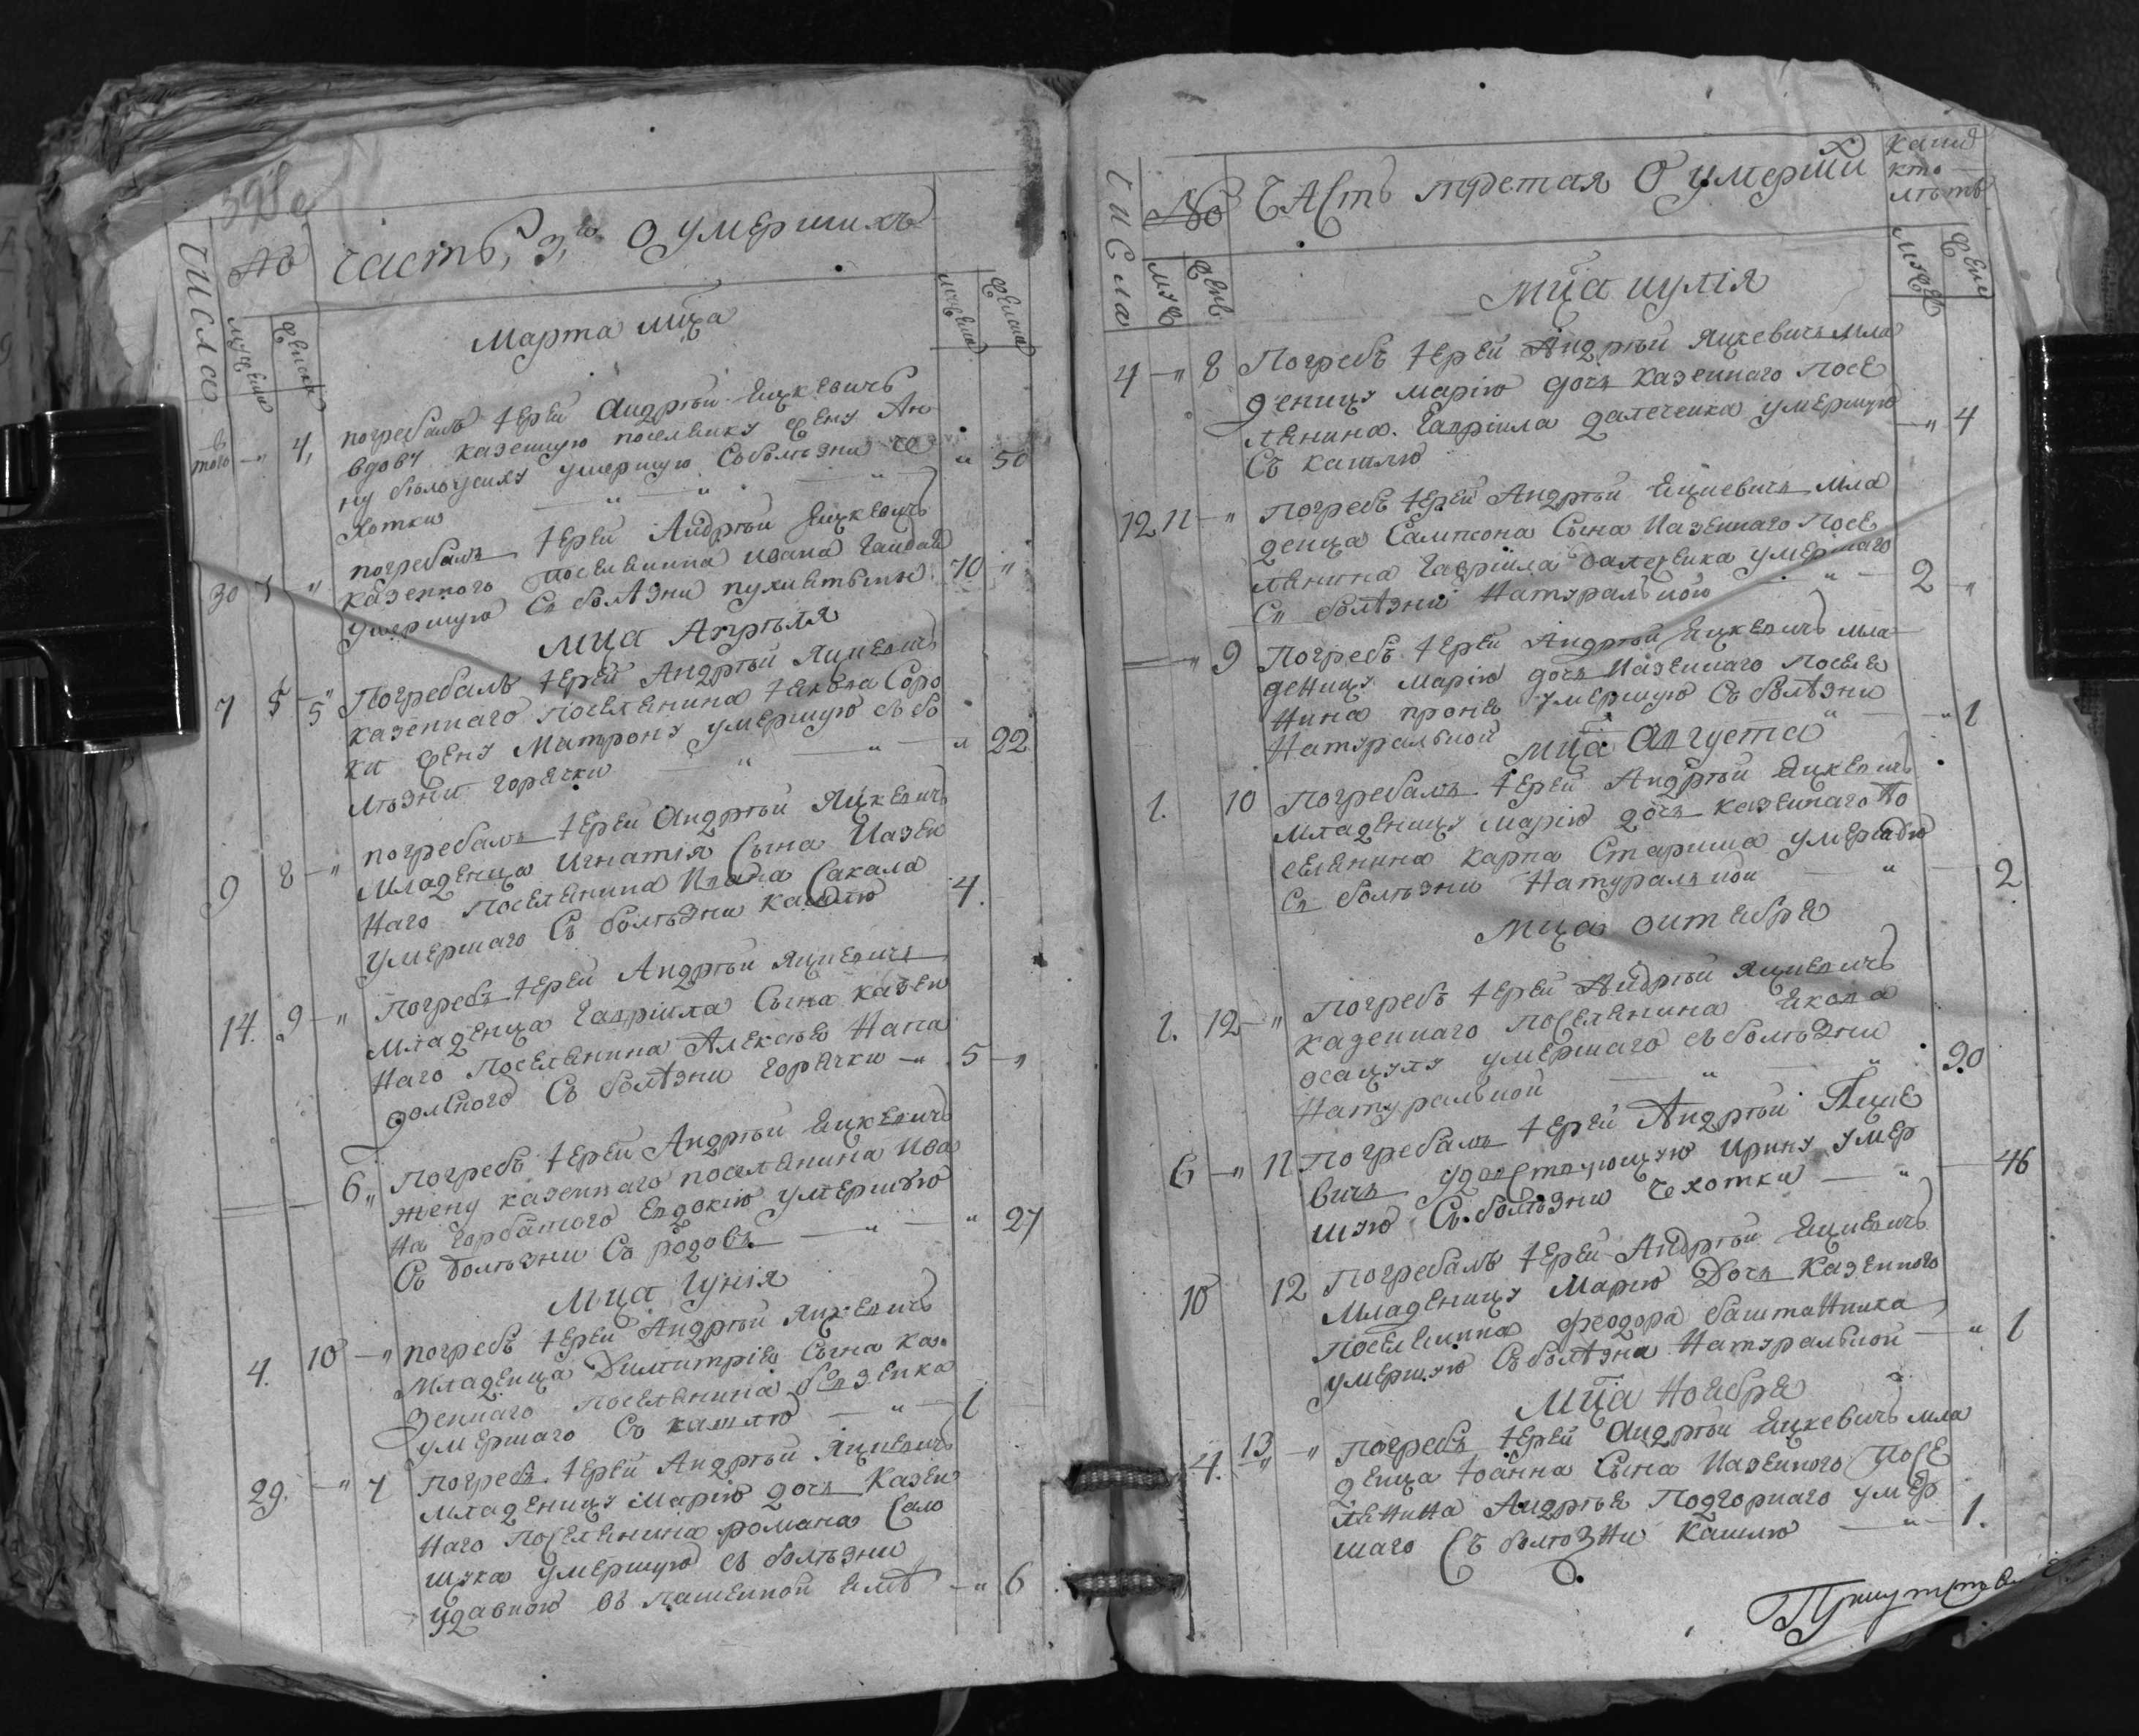 Числа
№
часть, 3, я О умершихъ
мужеска
женска
мужеска
женска
Марта мца
в того — " 4, погребалъ Іерей Андрѣй Яцкевичъ
вдову казенную поселянку жену Ан
ну умершую Съ болѣзни че
хотки — " — " — " 50
30 7 " погребалъ Іерей Андрѣй Яцкевичъ
казенного поселянина Ивана Гайдай
умершую Съ болѣзни 70 "
мца Апрѣля
7 5 — " 5 Погребалъ Іерей Андрѣй Яцкевичъ
казеннаго Поселянина Іакова Соро
ки жену Матрону умершую съ бо
лѣзни горячки — " — " — " 22
9 8 — " погребалъ Іерей Андрѣй Яцкевичъ
Младенца Игнатія Сына Казен
наго Поселянина Ивана Сакала
умершаго Съ болѣзни кашлю 4.
14. 9 — " Погребъ Іерей Андрѣй Яцкевичъ
младенца Гавріила Сына казен
наго Поселянина Алексѣе Напа
дольного Съ болѣзни горячки — " 5 — "
— — 6 " Погребъ Іерей Андрѣй Яцкевичъ
жену казеннаго поселянина Ива
на Горбатого Евдокію умершую
Съ болѣзни Съ родовъ — " — " 27
мца Іунія
4. 10 — " погребъ Іерей Андрѣй Яцкевичъ
младенца Димитріе Сына ка
зеннаго поселянина
умершаго Съ кашлю — " — 1
29. — " 7 Погребъ Іерей Андрѣй Яцкевичъ
младеницу Марію дочь Казен
наго Поселянина романа Сало
шука умершую съ болѣзни
— " 6
Числа
№
ЧАсть третая О умершихъ
каши
кто
лѣтъ
муж
женс
муж
женс
мца иулія
4 — " 8 Погребъ Іерей Андрѣй Яцкевичъ мла
деницу марію дочь казеннаго посе
лянина Гавріила далеченка умершую
Съ кашлю — " 4
12 11 — " Погребъ Іерей Андрѣй Яцкевичъ мла
денца Сампсона Сына Казеннаго Посе
лянина Гавріила далеченка умершаго
Съ болѣзни Натуральной — " — 2 — "
— " 9 Погребъ Іерей Андрѣй Яцкевичъ мла
деницу марію дочь Казеннаго поселе
нина проне умершую Съ болѣзни
Натуральной — " — " 1
мца Августа
1. 10 Погребалъ Іерей Андрѣй Яцкевичъ
младеницу марію дочь казеннаго По
селянина карпа Стариша умершую
Съ болѣзни Натуральной — " — 2
мца октября
1. 12 — " Погребъ Іерей Андрѣй Яцкевичъ
казеннаго поселянина Якова
осацулу умершаго съ болѣзни
Натуральной — " — " 90
6 — " 11 Погребалъ Іерей Андрѣй Яцке
вичъ Ирину умер
шую Съ болѣзни чехотки — " — 46
10 12 Погребалъ Іерей Андрѣй Яцкевичъ
младеницу Марію Дочь Казенного
поселянина феодора баштанника
умершую Съ болѣзни Натуральной — " 1
мца Ноября
4. 13 — " Погребъ Іерей Андрѣй Яцкевичъ мла
денца Іоанна Сына Казенного посе
лянина Андрѣе Подгорнаго умер
шаго Съ болѣзни кашлю — " — 1.